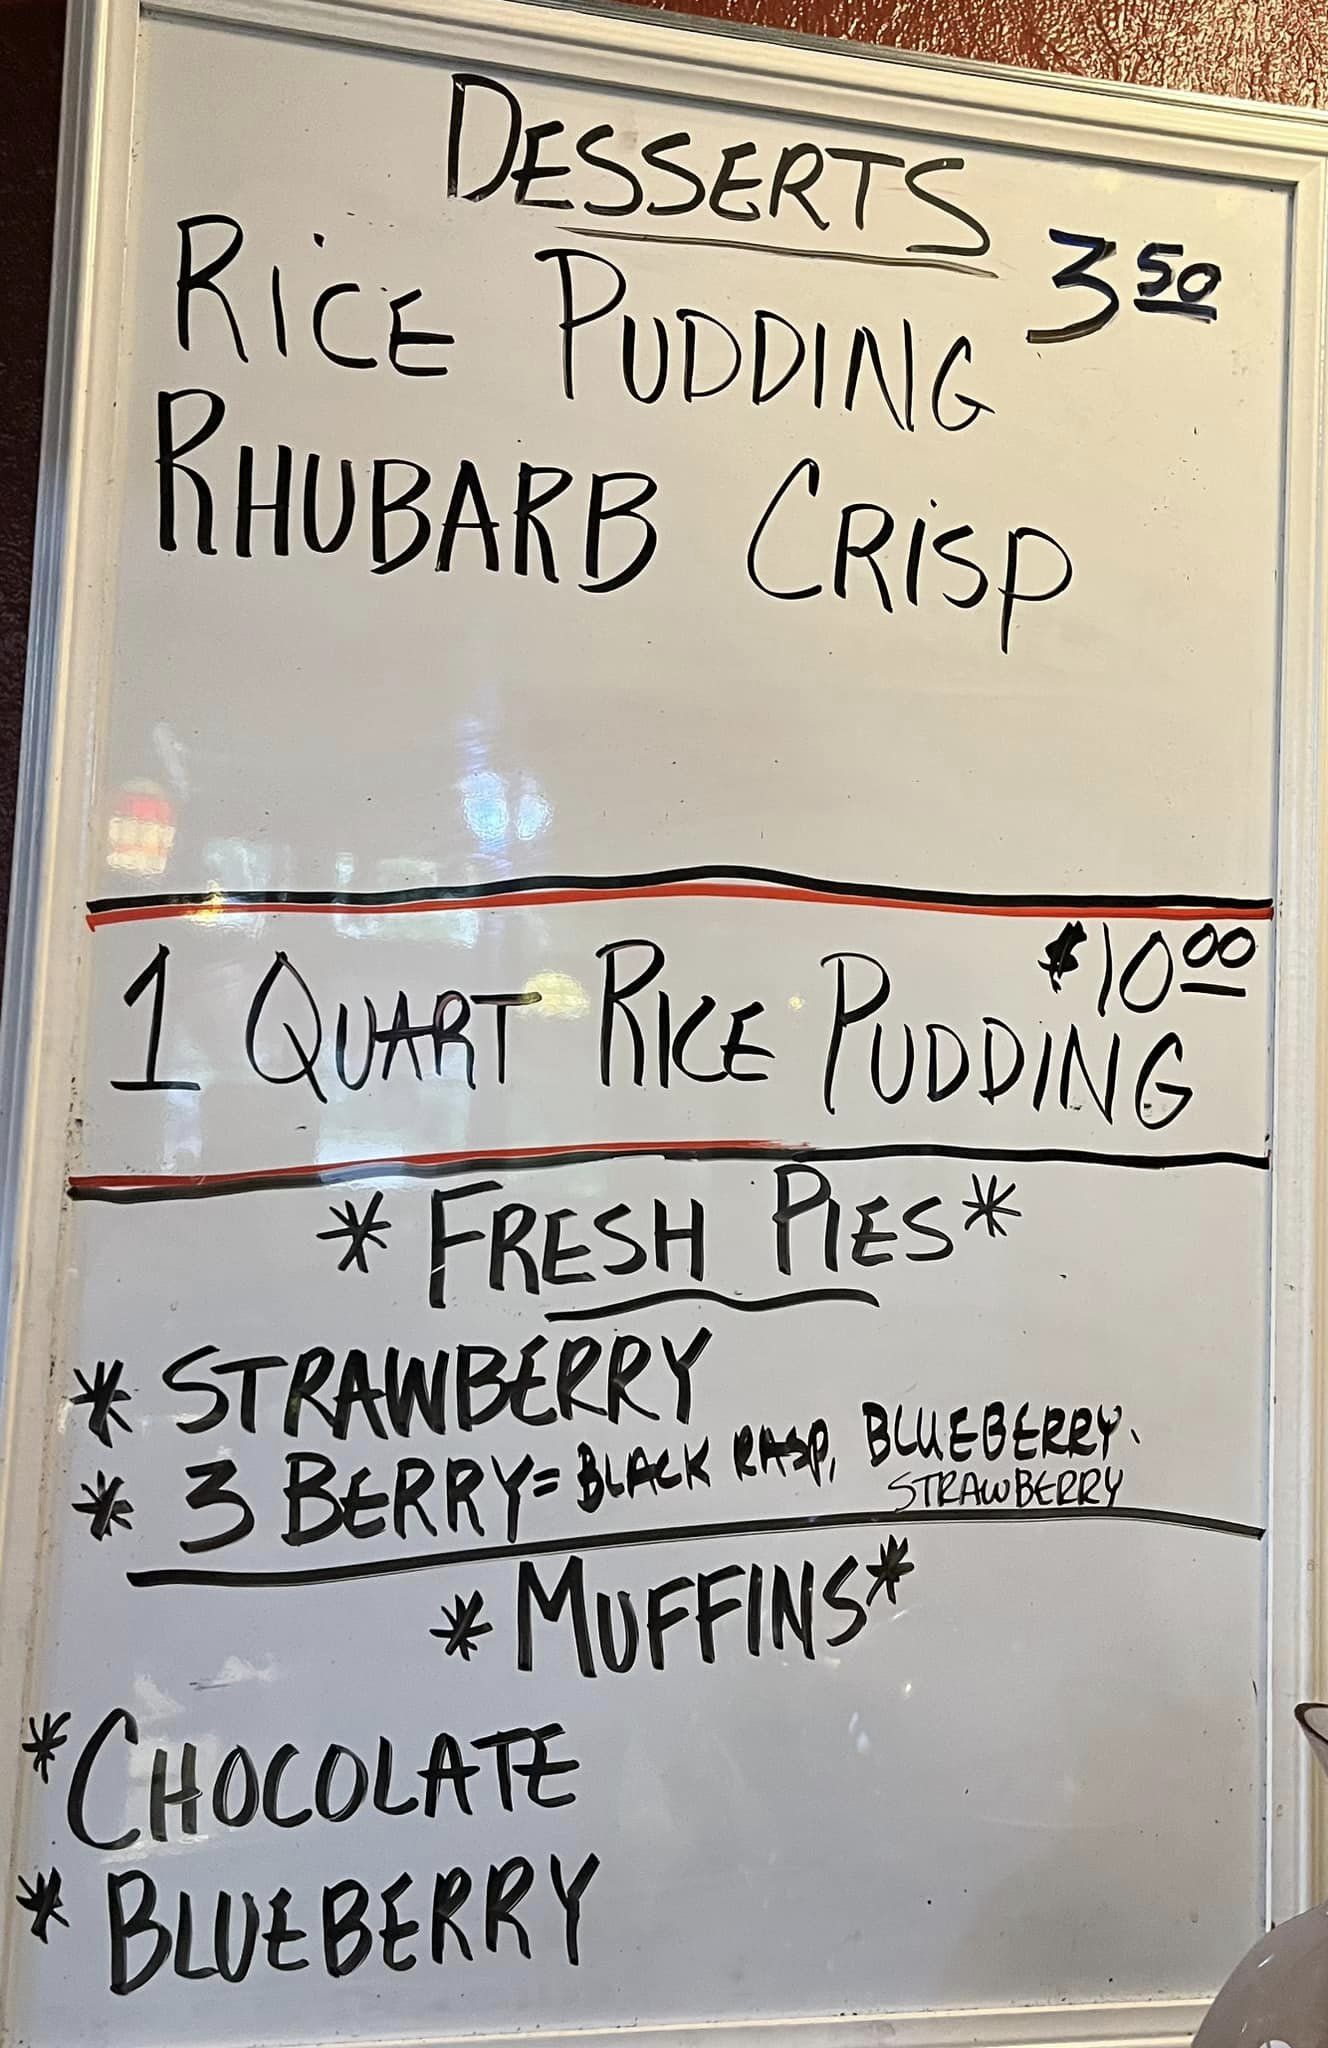 DESSERTS
RICE PUDDING 3 50
RHUBARB CRISP
$10 00
1 QUART RICE PUDDING
* FRESH PIES *
* STRAWBERRY
* 3 BERRY = BLACK RASP, BLUEBERRY.
STRAWBERRY
* MUFFINS *
* CHOCOLATE
* BLUEBERRY